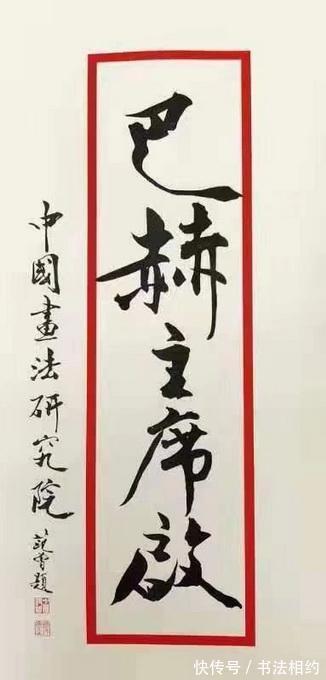 巴赫主席啟
中國畫法研究院
范曾題
快传号/书法相约